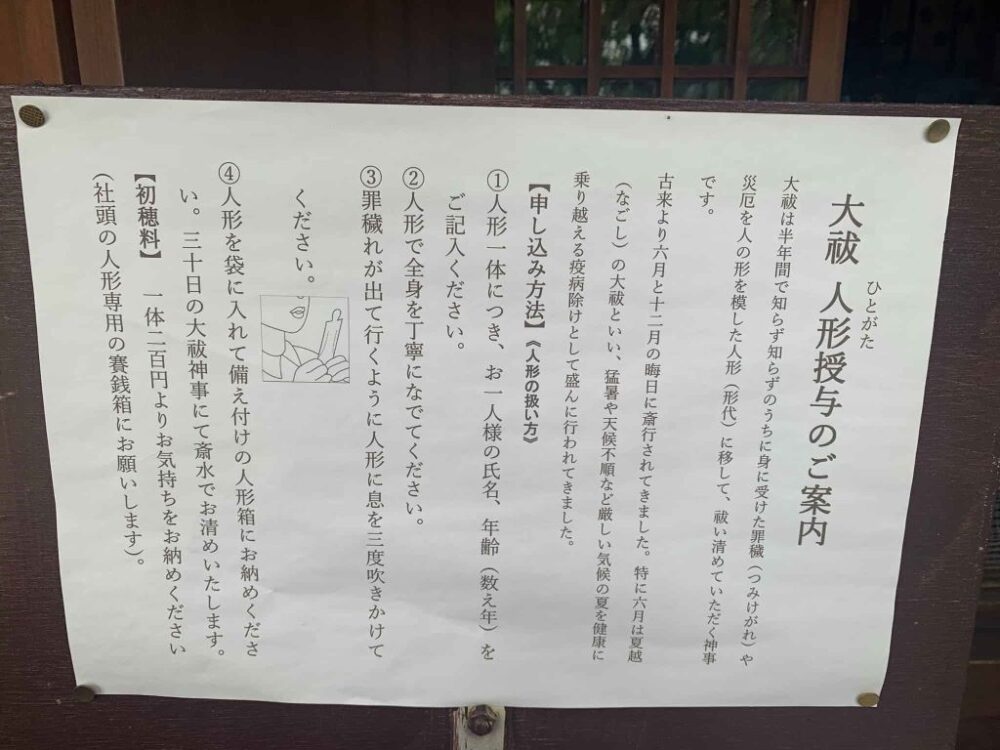 ひとがた
大祓 人形授与のご案内
大祓は半年間で知らず知らずのうちに身に受けた罪穢（つみけがれ）や
災厄を人の形を模した人形（形代）に移して、祓い清めていただく神事
です。
古来より六月と十二月の晦日に斎行されてきました。特に六月は夏越
（なごし）の大祓といい、猛暑や天候不順など厳しい気候の夏を健康に
乗り越える疫病除けとして盛んに行われてきました。
【申し込み方法】《人形の扱い方》
①人形一体につき、お一人様の氏名、年齢（数え年）を
ご記入ください。
②人形で全身を丁寧になでてください。
③罪穢れが出て行くように人形に息を三度吹きかけて
ください。
④人形を袋に入れて備え付けの人形箱にお納めくださ
い。三十日の大祓神事にて斎水でお清めいたします。
【初穂料】 一体二百円よりお気持ちをお納めください
（社頭の人形専用の賽銭箱にお願いします）。